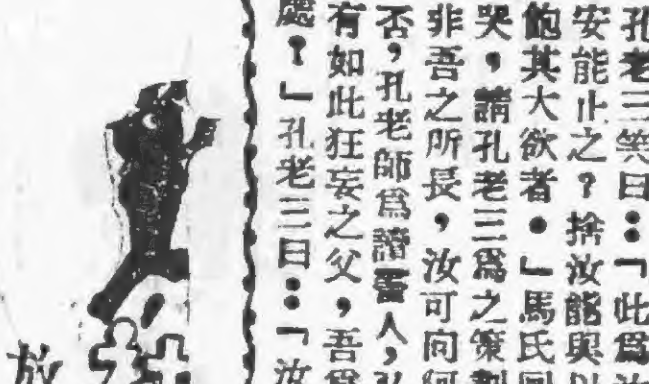 孔老三笑曰：「此爲汝
安能止之？捨汝能與以
飽其大欲者。」馬氏囘
哭，請孔老三爲之策劃
非吾之所長，汝可向何
否，孔老師爲讀書人，弘
有如此狂妄之父，吾爲
處？」孔老三曰：「汝
放